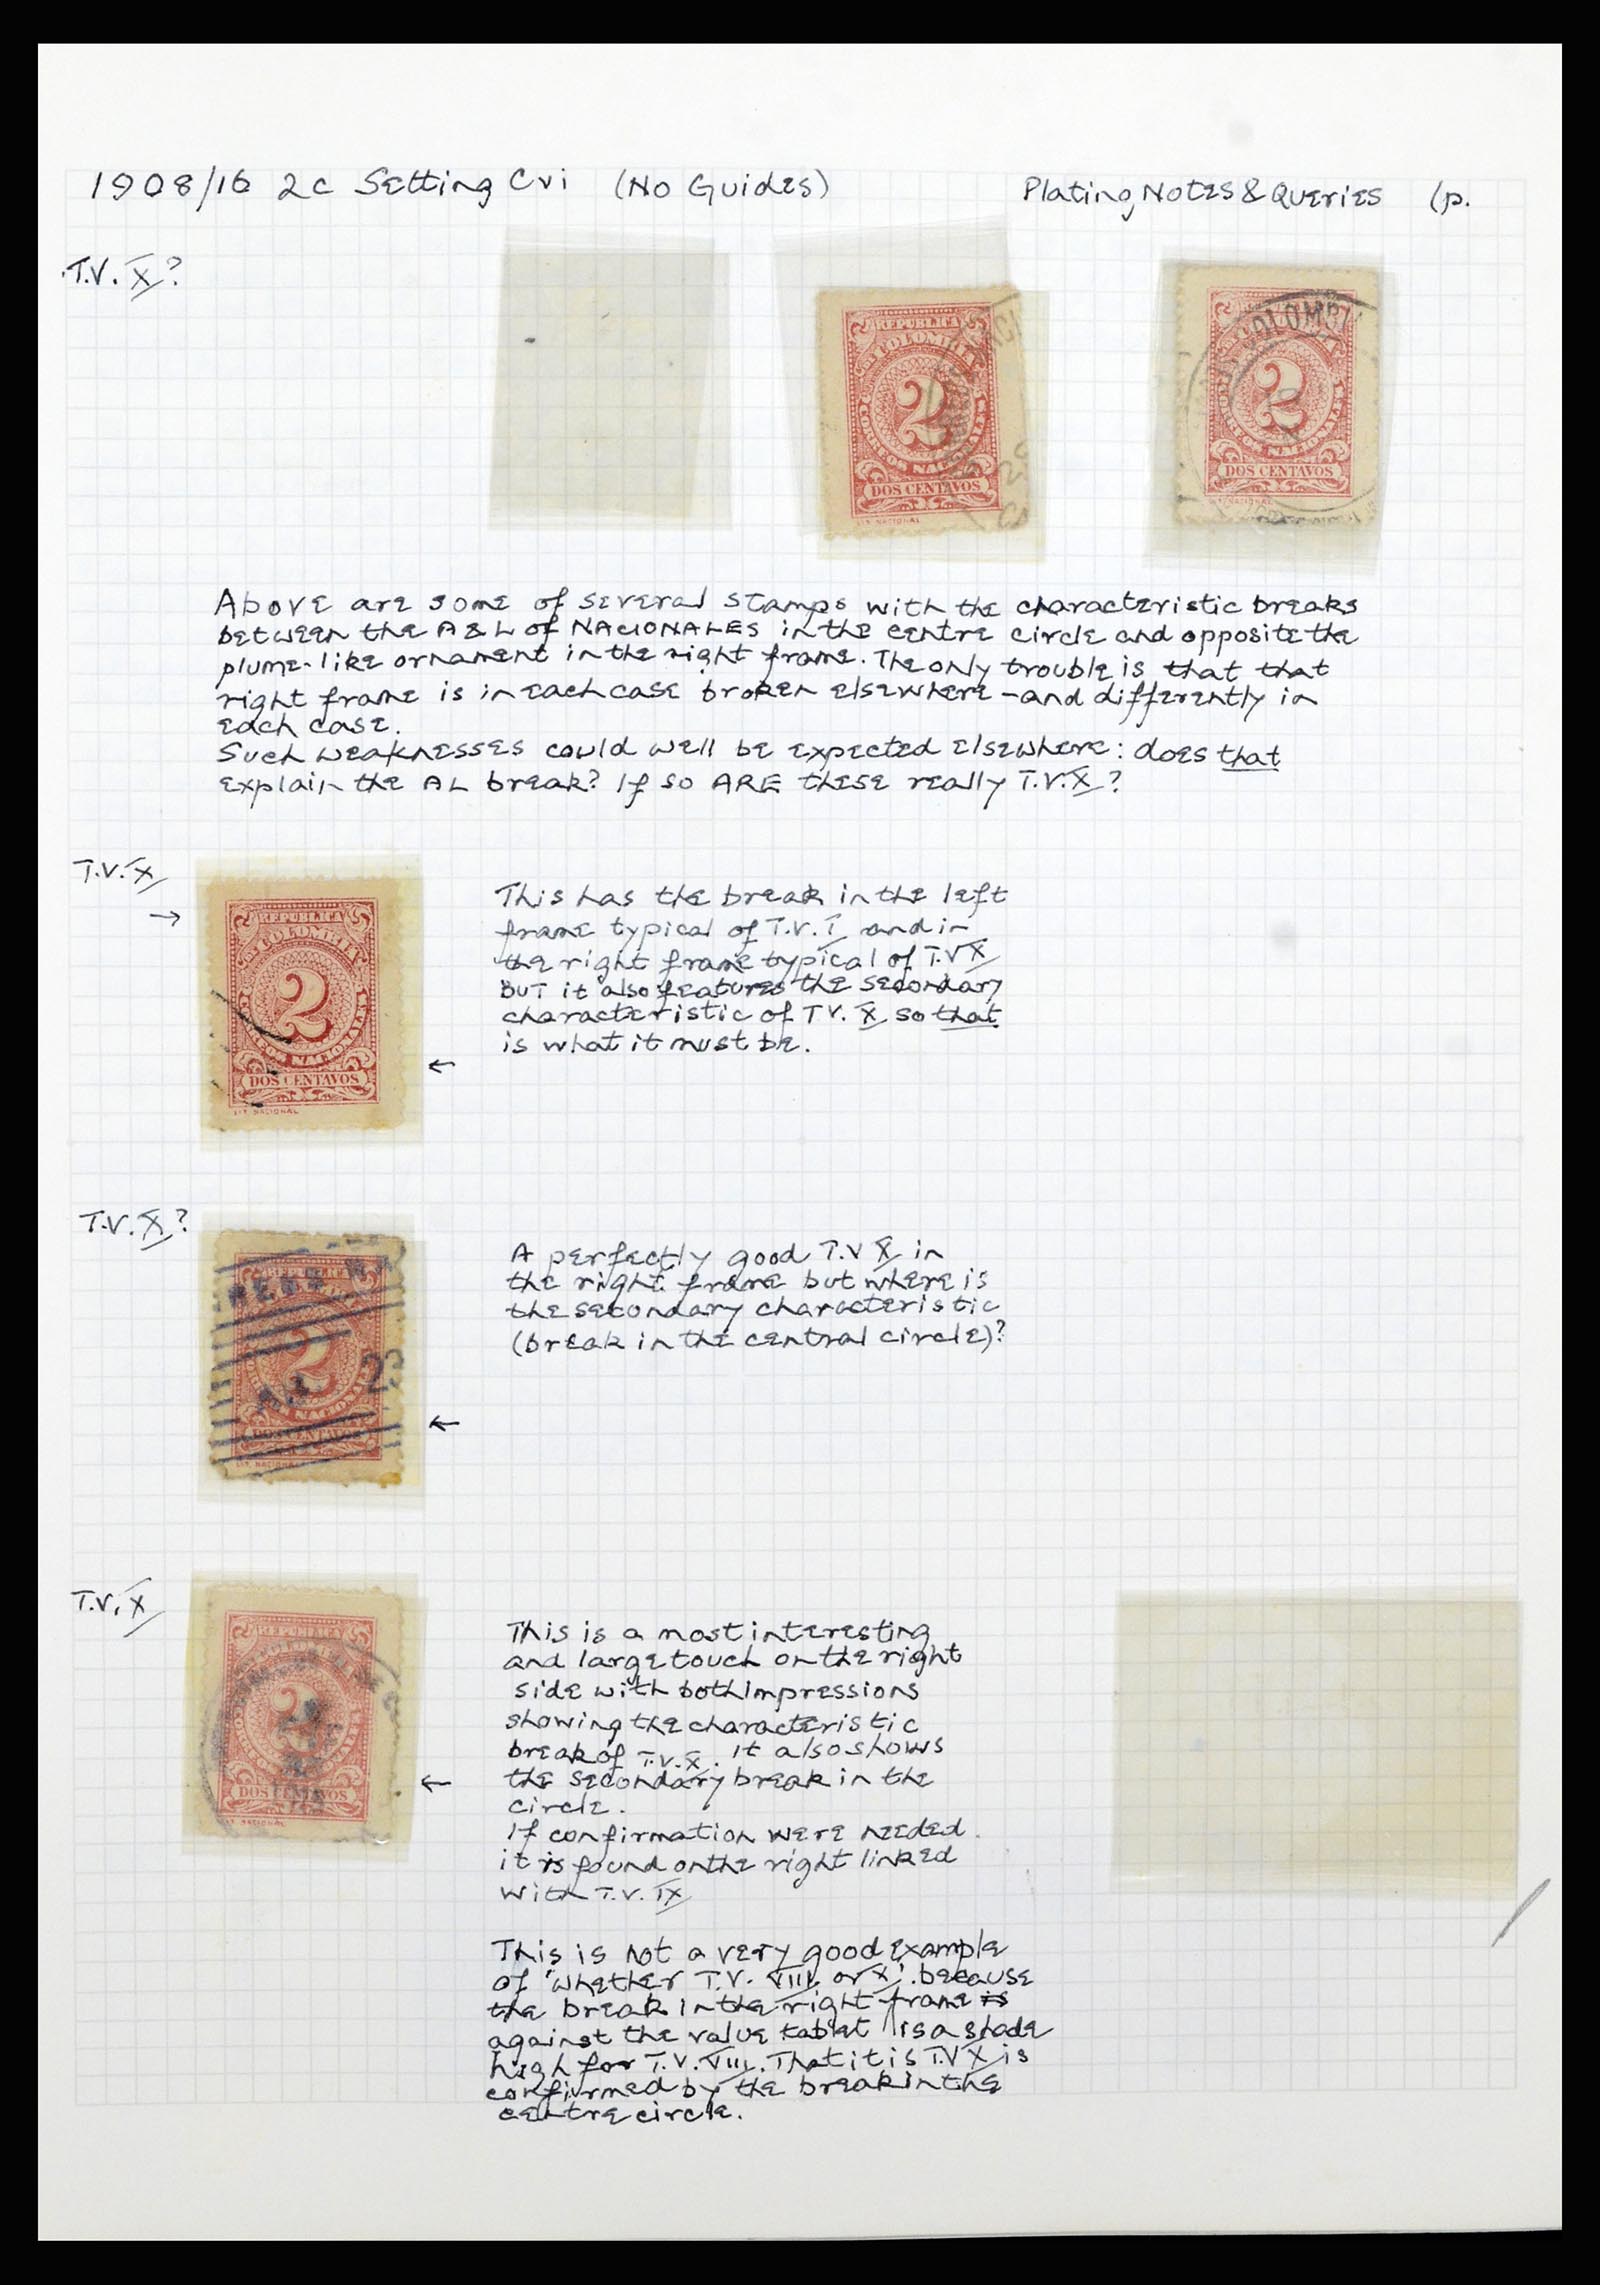 1908/16 2c Setting Cvi (No Guides) Plating Notes & Queries (p.
T.V. X?
REPUBLICA
COLOMBIA
2
CORREOS NACIONALES
DOS CENTAVOS
LIT. NACIONAL
REPUBLICA
COLOMBIA
2
NACIONALES
DOS CENTAVOS
NACIONAL
Above are some of several stamps with the characteristic breaks
between the A & L of NACIONALES in the centre circle and opposite the
plume-like ornament in the right frame. The only trouble is that that
right frame is in each case broken elsewhere - and differently in
each case.
Such weaknesses could well be expected elsewhere: does that
explain the AL break? If so ARE these really T.V.X?
T.V.X
→
REPUBLICA
DE COLOMBIA
2
CORREOS NACIONALES
DOS CENTAVOS
LIT. NACIONAL
←
This has the break in the left
frame typical of T.V. I and in
the right frame typical of T.V X
BUT it also features the secondary
characteristic of TV. X so that
is what it must be.
T.V. X?
2
23
NACIONALES
DOS CENTAVOS
LIT. NACIONAL
←
A perfectly good T.V X in
the right frame but where is
the secondary characteristic
(break in the central circle)?
T.V. X
REPUBLICA
COLOMBIA
2
DOS CENTAVOS
LIT. NACIONAL
←
This is a most interesting
and large touch on the right
side with both impressions
showing the characteristic
break of T.V.X. It also shows
the secondary break in the
circle.
If confirmation were needed
it is found on the right linked
with T.V. IX
This is not a very good example
of "whether T.V. VIII or X". because
the break in the right frame is
against the value tablet is a shade
high for T.V. VIII. That it is T.V X is
confirmed by the break in the
centre circle.